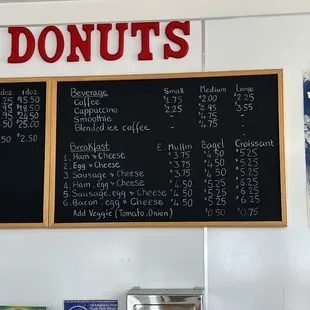 DONUTS
doz. 1doz
Beverage Small Medium Large
Coffee $1.75 $2.00 $2.25
Cappuccino $2.25 $2.95 $3.55
Smoothie - $4.75 -
Blended ice coffee - $4.75 -
Breakfast E. Muffin Bagel Croissant
1. Ham & Cheese $3.75 $4.50 $5.25
2. Egg & Cheese $3.75 $4.50 $5.25
3. Sausage & Cheese $3.75 $4.50 $5.25
4. Ham, egg & Cheese $4.50 $5.25 $6.25
5. Sausage, egg & Cheese $4.50 $5.25 $6.25
6. Bacon, egg & Cheese $4.50 $5.25 $6.25
Add Veggie (Tomato, Onion) $0.50 $0.75